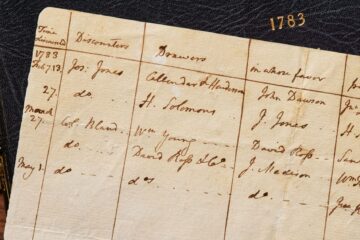 1783
Time discounted Discounters Drawers in whose favor
1783
Feb. 13. Jos: Jones Callender & Henderson John Dawson
27. do H. Solomons J. Jones
March 27 Col. Bland Wm Young David Ross
do. David Ross & Co. J. Madison
May 1. do dos do.